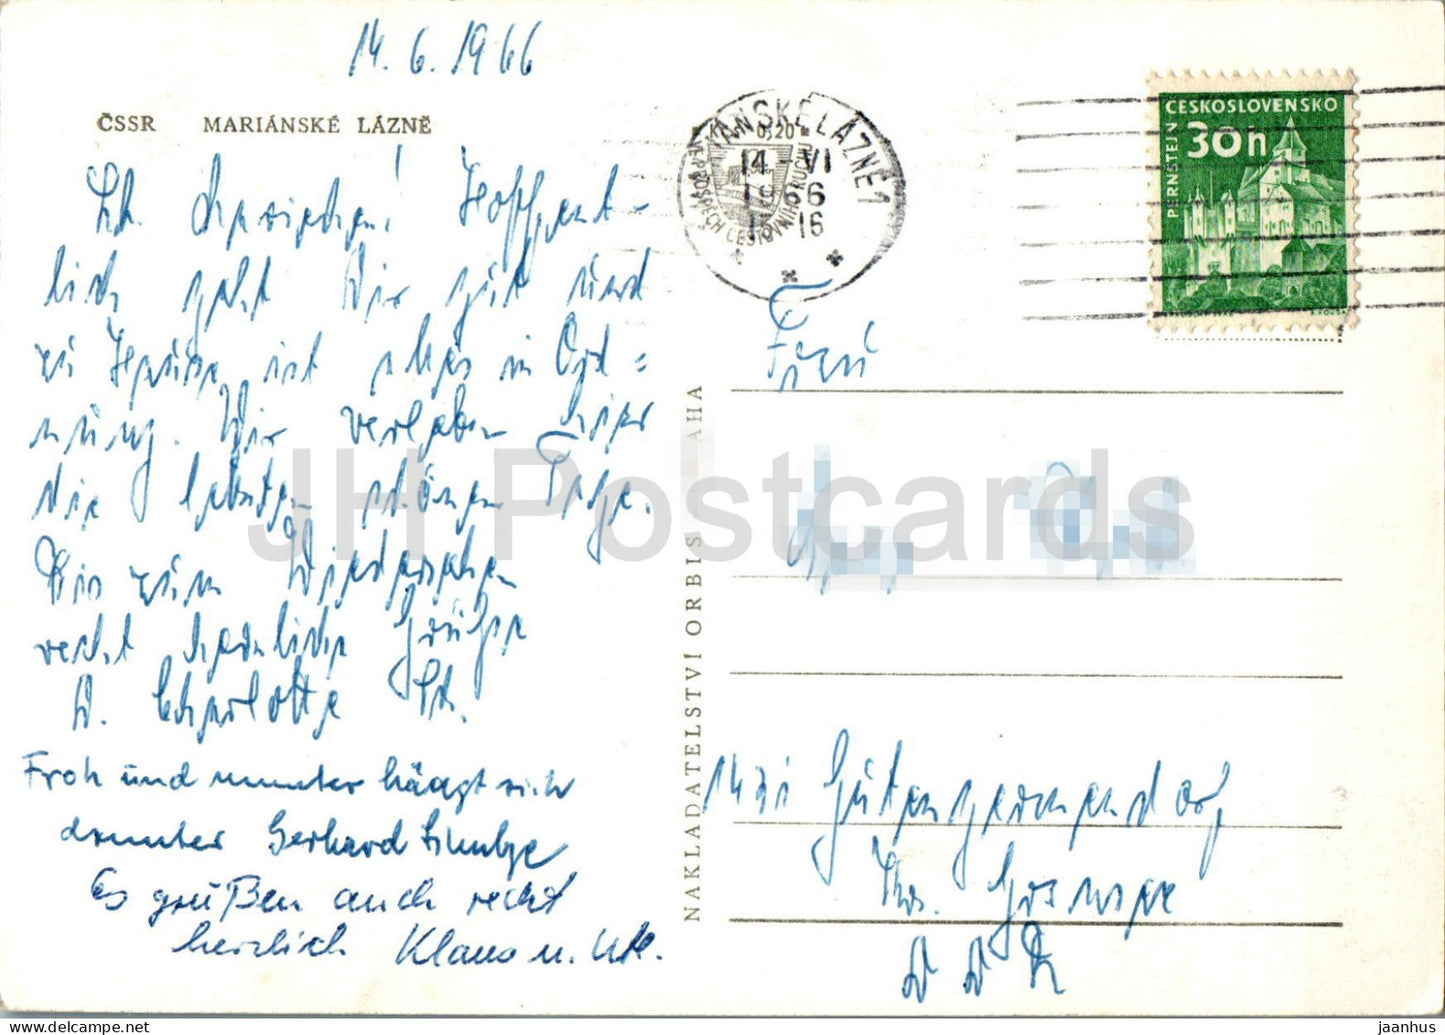 14. 6. 1966
ČSSR MARIÁNSKÉ LÁZNĚ
Hoffent-
lich geht Dir gut und
zu Hause ist alles in Ord=
nung. Wir verleben hier
die letzten schönen Tage.
Bis zum Wiedersehen
recht herzliche Grüße
D. Charlotte
Froh und munter hängt sich
drunter Gerhard
Es grüßen auch recht
herzlich Klaus u. Ute.
MARIÁNSKÉ LÁZNĚ 1
14.-VI
1966
16
VE PROSPĚCH CESTOVNÍHO RUCHU
ČESKOSLOVENSKO
30h
PERNŠTEJN
NAKLADATELSTVÍ ORBIS PRAHA
Frau
1431 Gutengermendorf
Krs. Gransee
DDR
JH Postcards
https://www.delcampe.net
jaanhus